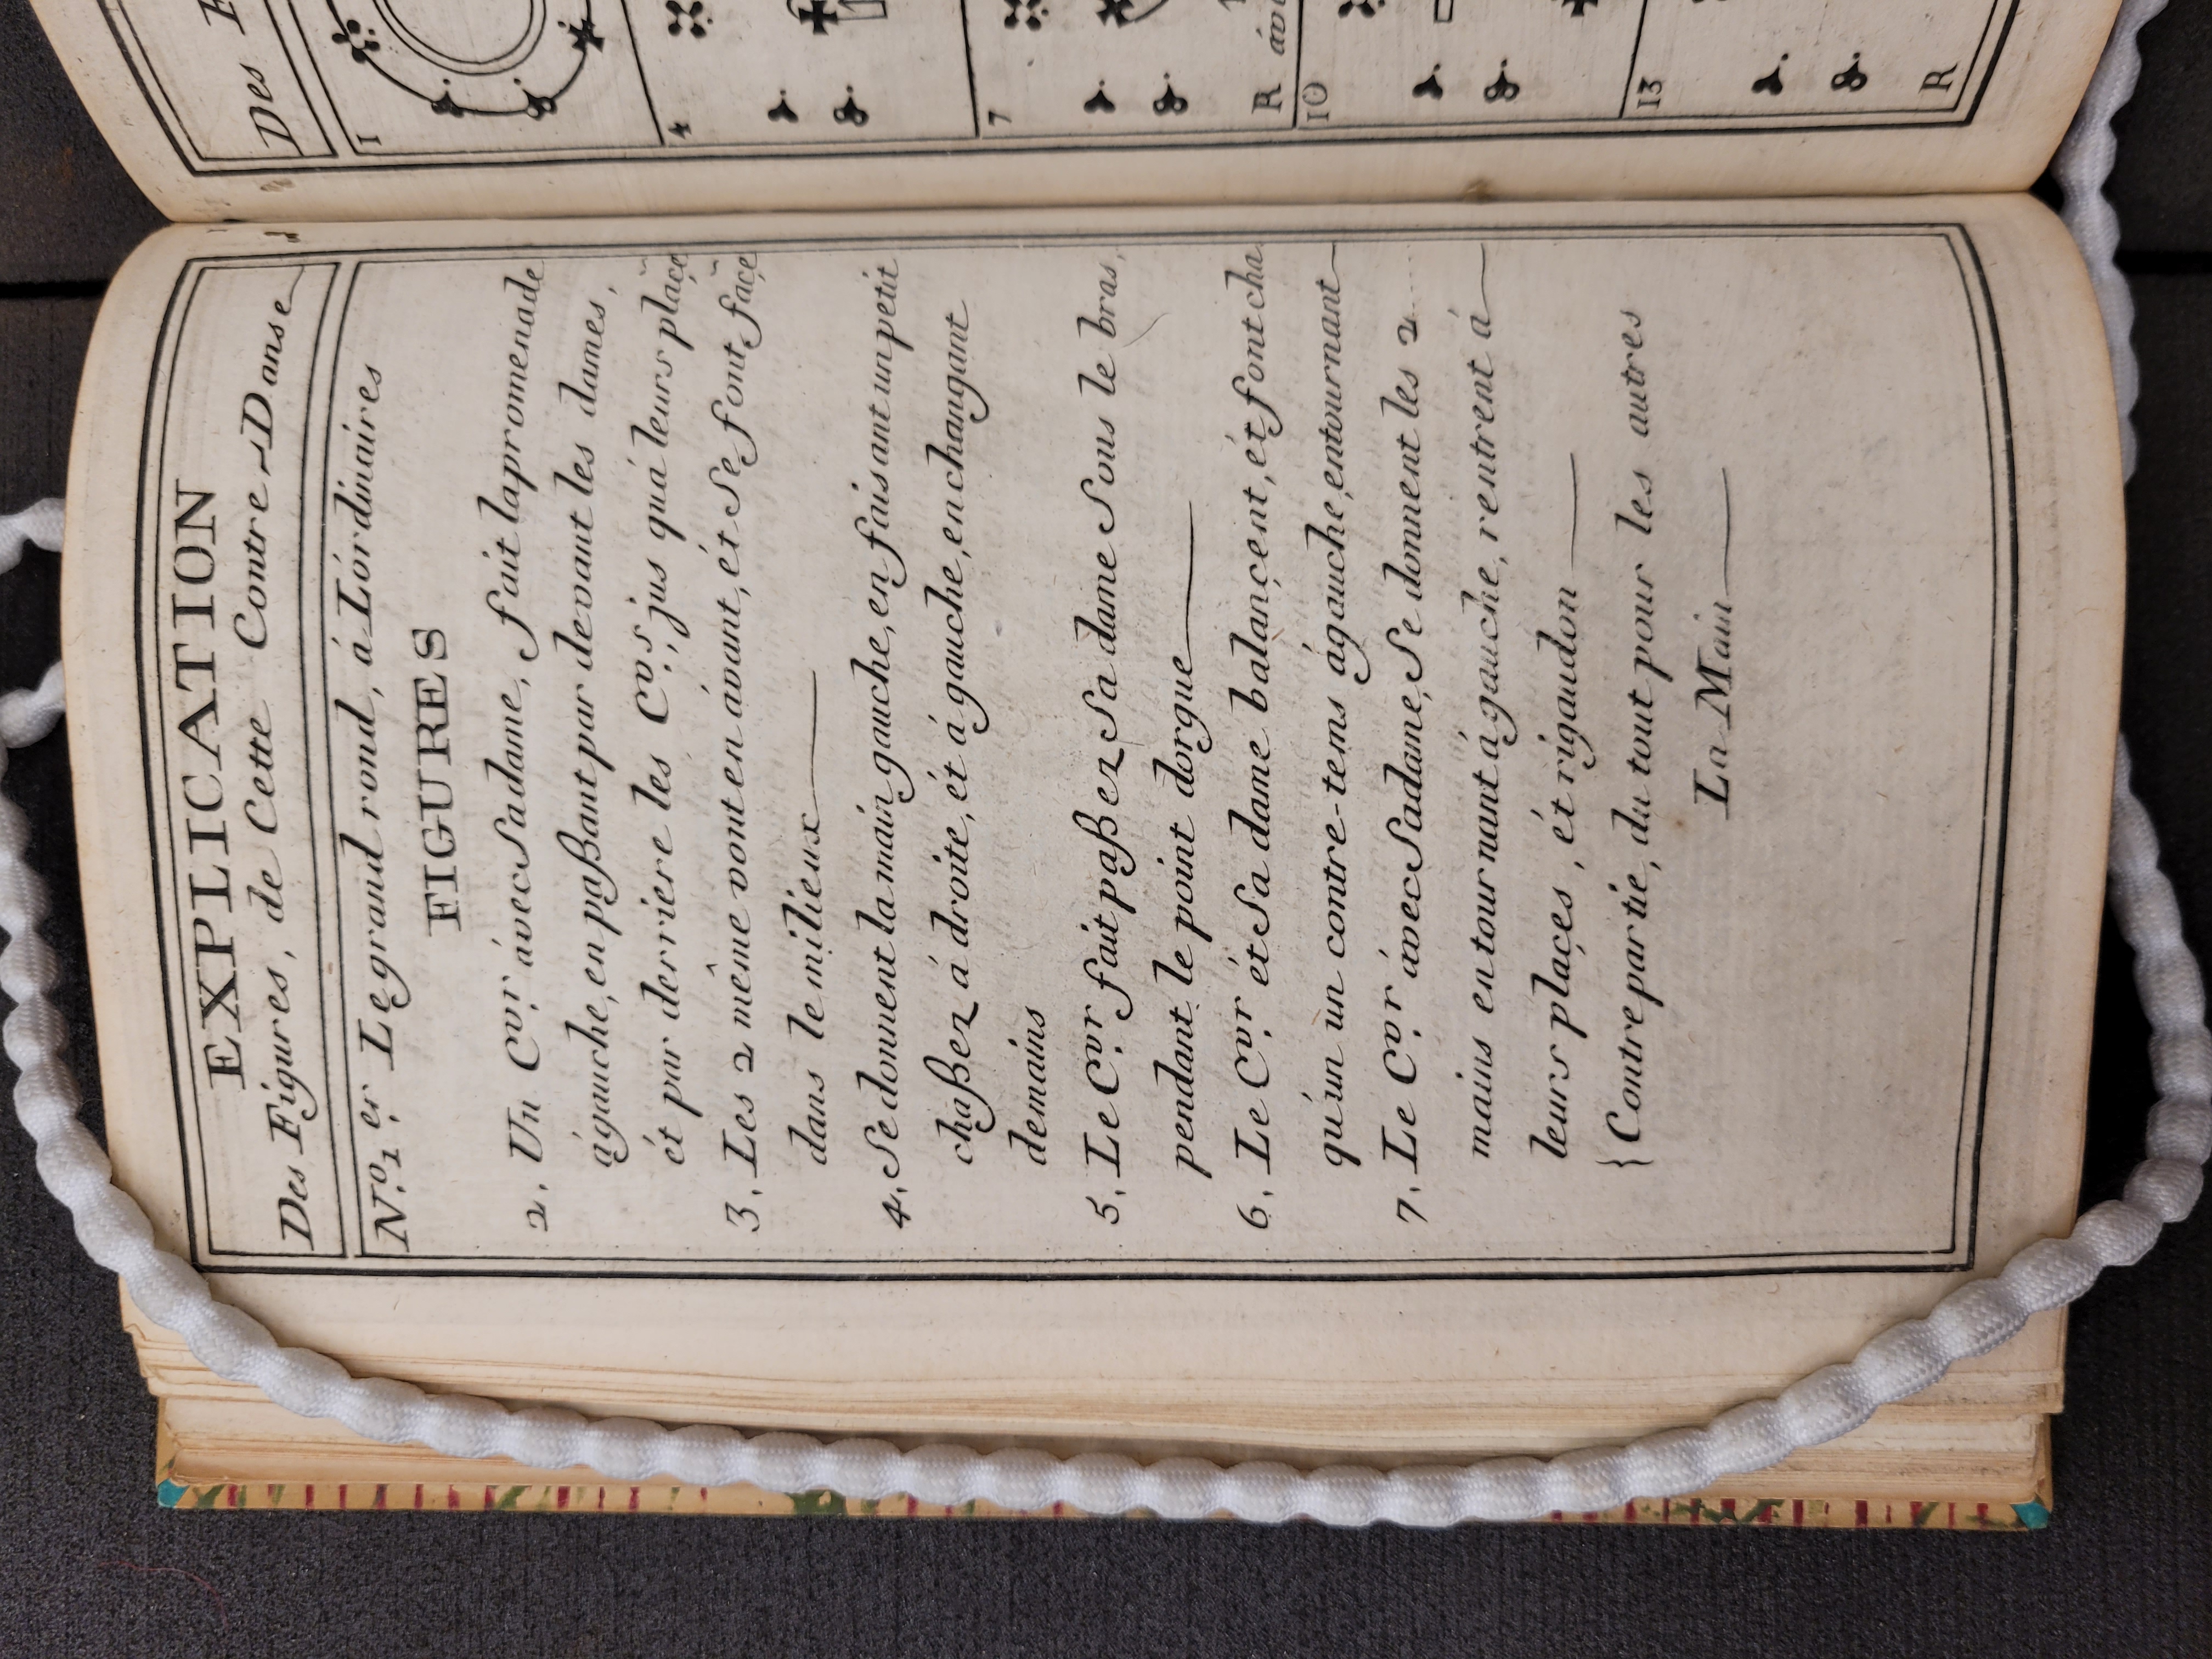 EXPLICATION
Des Figures, de Cette Contre Danse
N.º 1.er Le grand rond, á L'órdinaires
FIGURES
2. Un C.vr ávec Sa dame, fait la promenade
ágauche, en paßant par devant les dames,
ét par derriere les C.vrs, jus qu'á leurs place
3. Les 2 même vont en ávant, ét Se font face
dans le milieux
4. Se donnent la main gauche, en faisant un petit
chaßez á droite, ét á gauche, en changant
demains
5. Le C.vr fait paßez Sa dame Sous le bras,
pendant le point dorgue
6. Le C.vr ét Sa dame balançent, ét font cha
qu'un un contre-tems ágauche, entournant
7. Le C.vr ávec Sadame, Se donnent les 2
mains en tournant á gauche, rentrent á
leurs plaçes, ét rigaudon
{Contrepartie, du tout pour les autres
La Main
Des
1
4
7
R
10
13
R